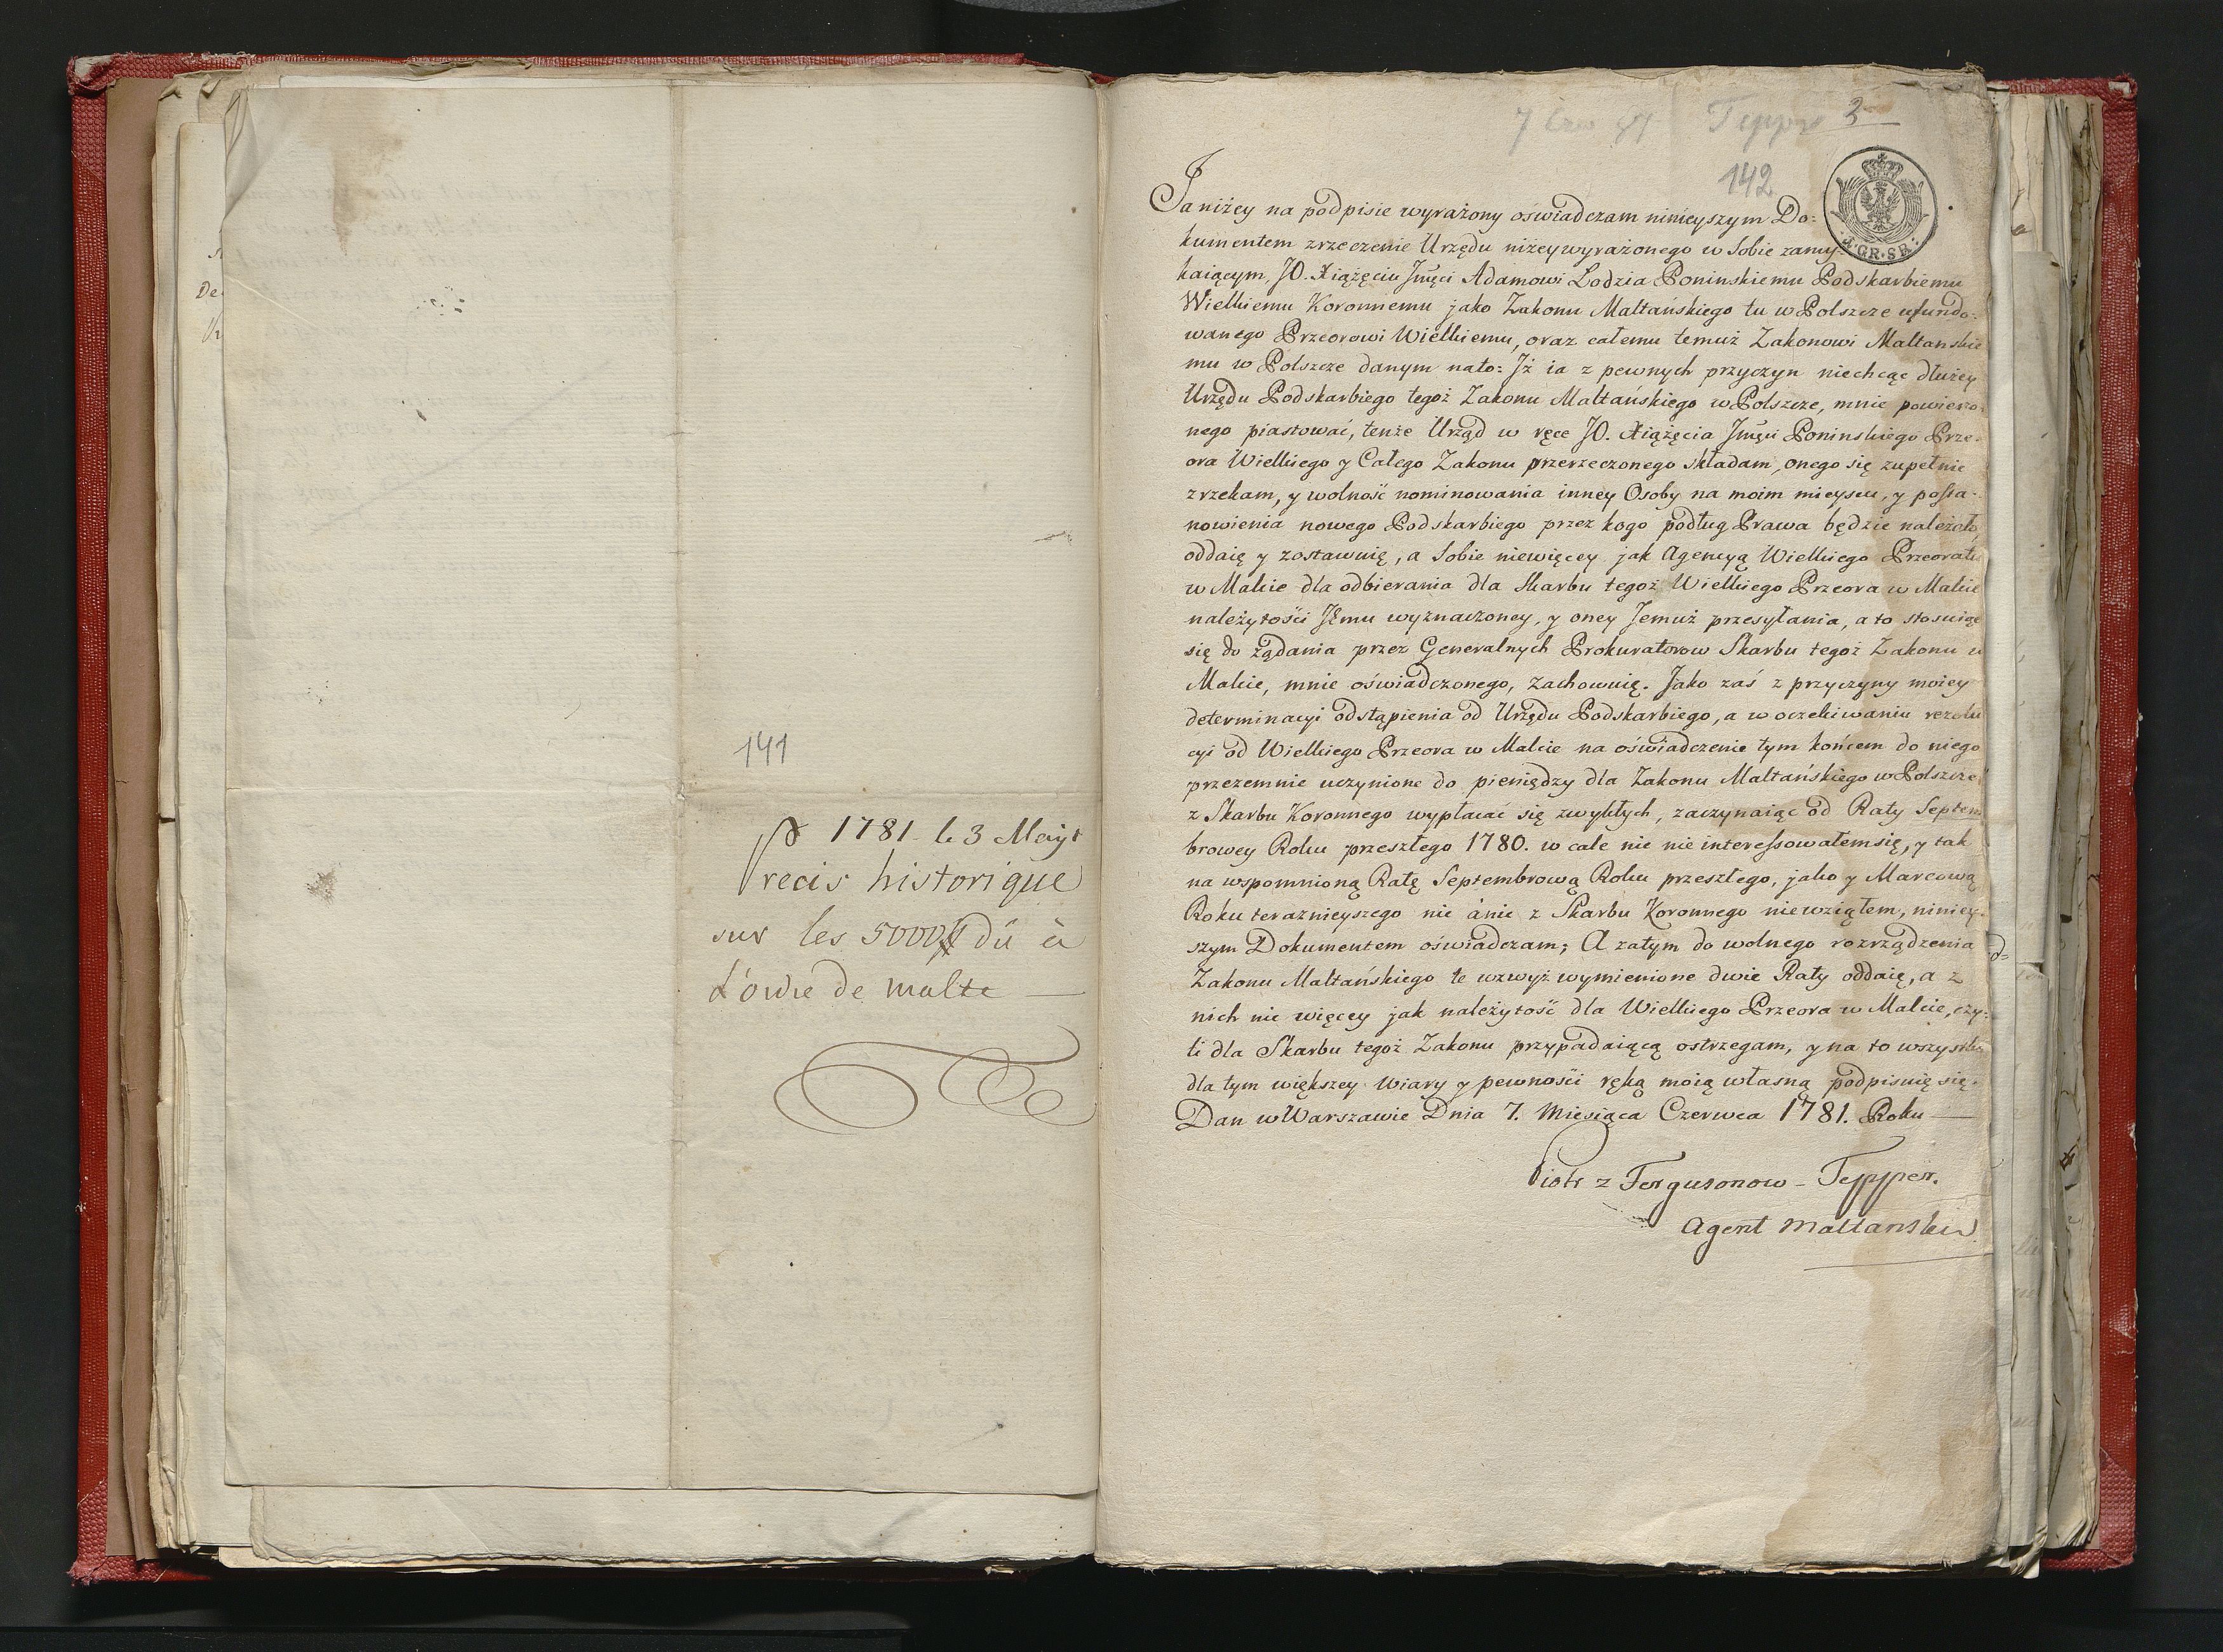 141
1781 le 3 Mays
Precis historique
sur les 5000# dü à
L'ordre de malte —
7 Czer Tepper 3
142
4·GR·SR·
Ja niżey na podpisie wyrażony oświadczam ninieyszym Do:
kumentem zrzeczenie Urzędu niżeywyrażonego w Sobie zamy:
kaiącym, JO. Xiążęciu Jmći Adamowi Lodzia Poninskiemu Podskarbiemu
Wielkiemu Koronnemu jako Zakonu Maltańskiego tu w Polszcze ufundo:
wanego Przeorowi Wielkiemu, oraz całemu temuż Zakonowi Maltanskie
mu w Polszcze danym nato: Jż ia z pewnych przyczyn niechcąc dłużey
Urzędu Podskarbiego tegoż Zakonu Maltańskiego w Polszcze, mnie powierzo
nego piastować, tenże Urząd w ręce JO. Xiążęcia Jmći Poninskiego Prze:
ora Wielkiego y Całego Zakonu przerzeczonego składam, onego się zupełnie
zrzekam, y wolność nominowania inney Osoby na moim mieyscu, y posta:
nowienia nowego Podskarbiego przez kogo podług Prawa będzie należało,
oddaię y zostawuię, a Sobie niewięcey jak Agencyą Wielkiego Przeoratu
w Malcie dla odbierania dla Skarbu tegoż Wielkiego Przeora w Malcie
należytości Jemu wyznaczoney, y oney Jemuż przesyłania, a to stosuiąc
się do żądania przez Generalnych Prokuratorow Skarbu tegoż Zakonu w
Malcie, mnie oświadczonego, zachowuię. Jako zaś z przyczyny moiey
determinacyi odstąpienia od Urzędu Podskarbiego, a w oczekiwaniu rezolu
cyi od Wielkiego Przeora w Malcie na oświadczenie tym końcem do niego
przezemnie uczynione do pieniędzy dla Zakonu Maltańskiego w Polszcze
z Skarbu Koronnego wypłacać się zwykłych, zaczynaiąc od Raty Septem
browey Roku przeszłego 1780. w cale nic nie interessowałemsię, y tak
na wspomnioną Ratę Septembrową Roku przeszłego, jako y Marcową
Roku teraznieyszego nic ánic z Skarbu Koronnego niewziąłem, niniey:
szym Dokumentem oświadczam; A zatym do wolnego rozrządzenia
Zakonu Maltańskiego te wzwyż wymienione dwie Raty oddaię, a z
nich nic więcey jak należytość dla Wielkiego Przeora w Malcie, czy:
li dla Skarbu tegoż Zakonu przypadaiącą ostrzegam, y na to wszystko
dla tym większey wiary y pewności ręką moią własną podpisuię się.
Dan w Warszawie Dnia 7. Miesiąca Czerwca 1781. Roku —
Piotr z Fergusonow – Tepper.
Agent Maltanski